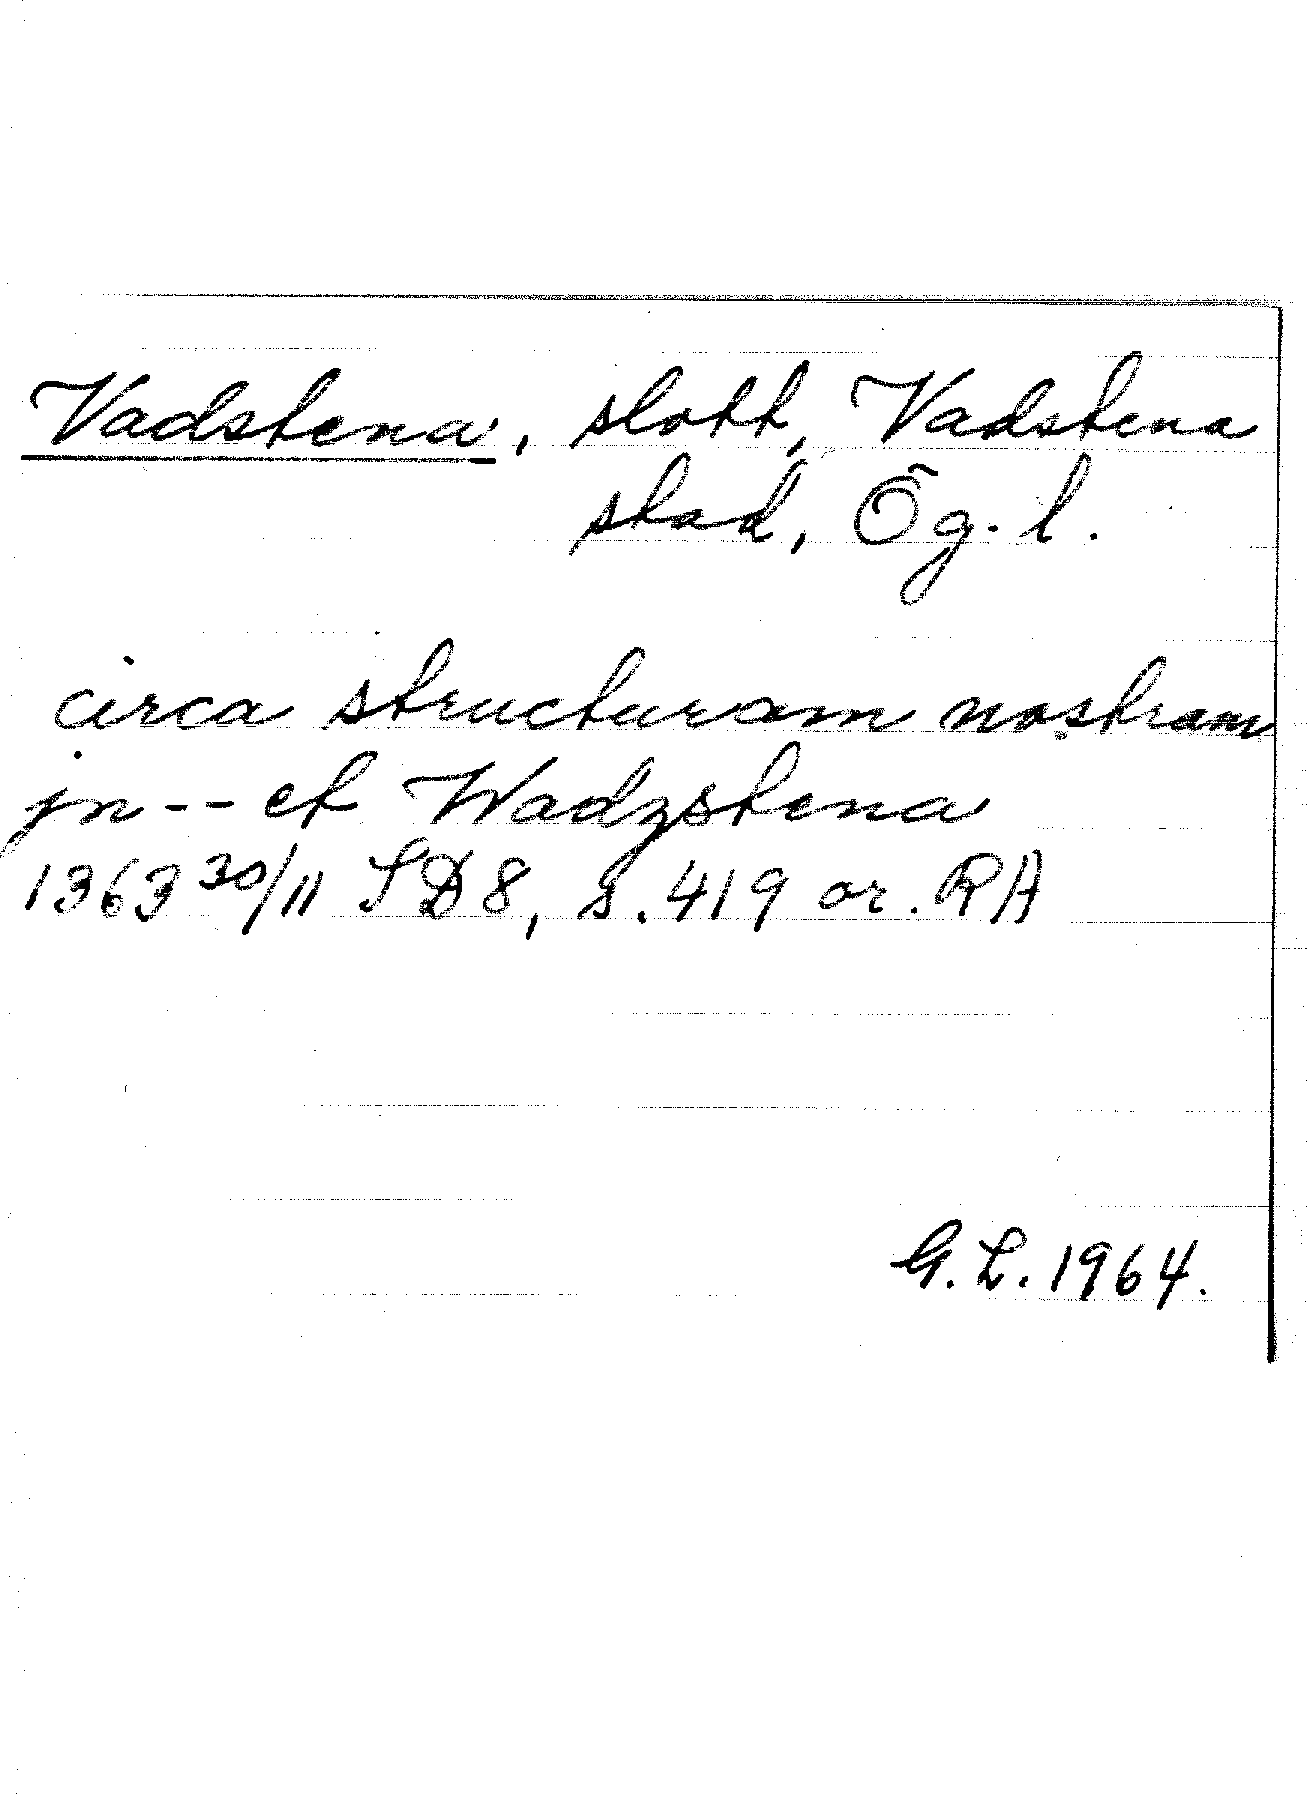 Vadstena, slott, Vadstena
stad, Ög. l.
circa structuram nostram
jn -- et Wadzstena
1363 30/11 SD 8, s. 419 or. RA
G. L. 1964.